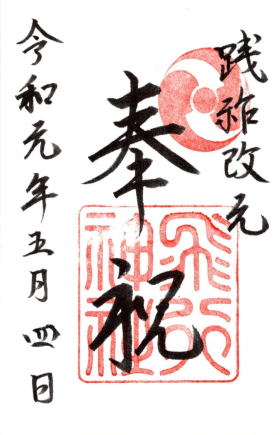 践祚改元
奉祝
飛行神社
令和元年五月四日